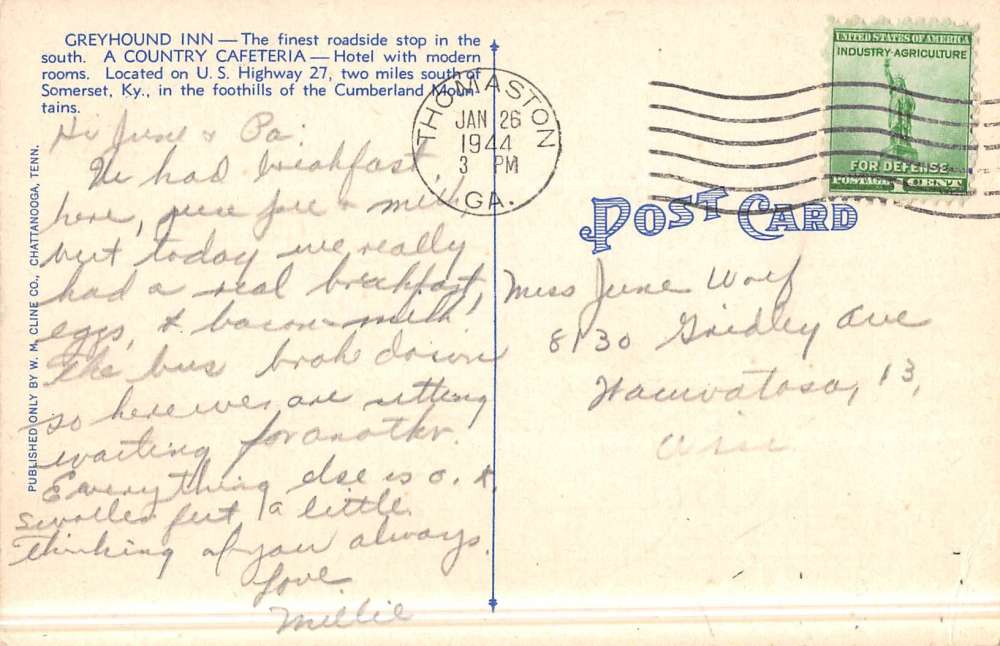 GREYHOUND INN — The finest roadside stop in the
south. A COUNTRY CAFETERIA — Hotel with modern
rooms. Located on U. S. Highway 27, two miles south of
Somerset, Ky., in the foothills of the Cumberland Moun
tains.
PUBLISHED ONLY BY W. M. CLINE CO., CHATTANOOGA, TENN.
Hi June & Pa:
We had breakfast
here, & milk,
but today we really
had a real breakfast,
eggs, & bacon - milk.
The bus brok down
so here we are sitting
waiting for anothr.
Everything else is o. k.
swollen feet a little.
thinking of you always.
Love
Millie
THOMASTON
JAN 26
1944
3 PM
GA.
UNITED STATES OF AMERICA
INDUSTRY-AGRICULTURE
FOR DEFENSE
POSTAGE 1 CENT
POST CARD
Miss June Wolf
8130 Gridley Ave
Wauwatosa, 13,